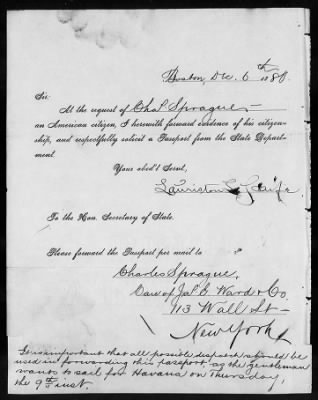 Boston, Dec. 6th 1880.
Sir:
At the request of Chas. Sprague
an American citizen, I herewith forward evidence of his citizen-
ship, and respectfully solicit a Passport from the State Depart-
ment.
Your obed't Serv't,
Lauriston L.
To the Hon. Secretary of State.
Please forward the Passport per mail to
Charles Sprague,
Care of Jas. E. Ward & Co.
113 Wall St
New York
It is important that all possible dispatch should be
used in forwarding this passport, as the gentleman
wants to sail for Havana on Thursday,
the 9th inst.